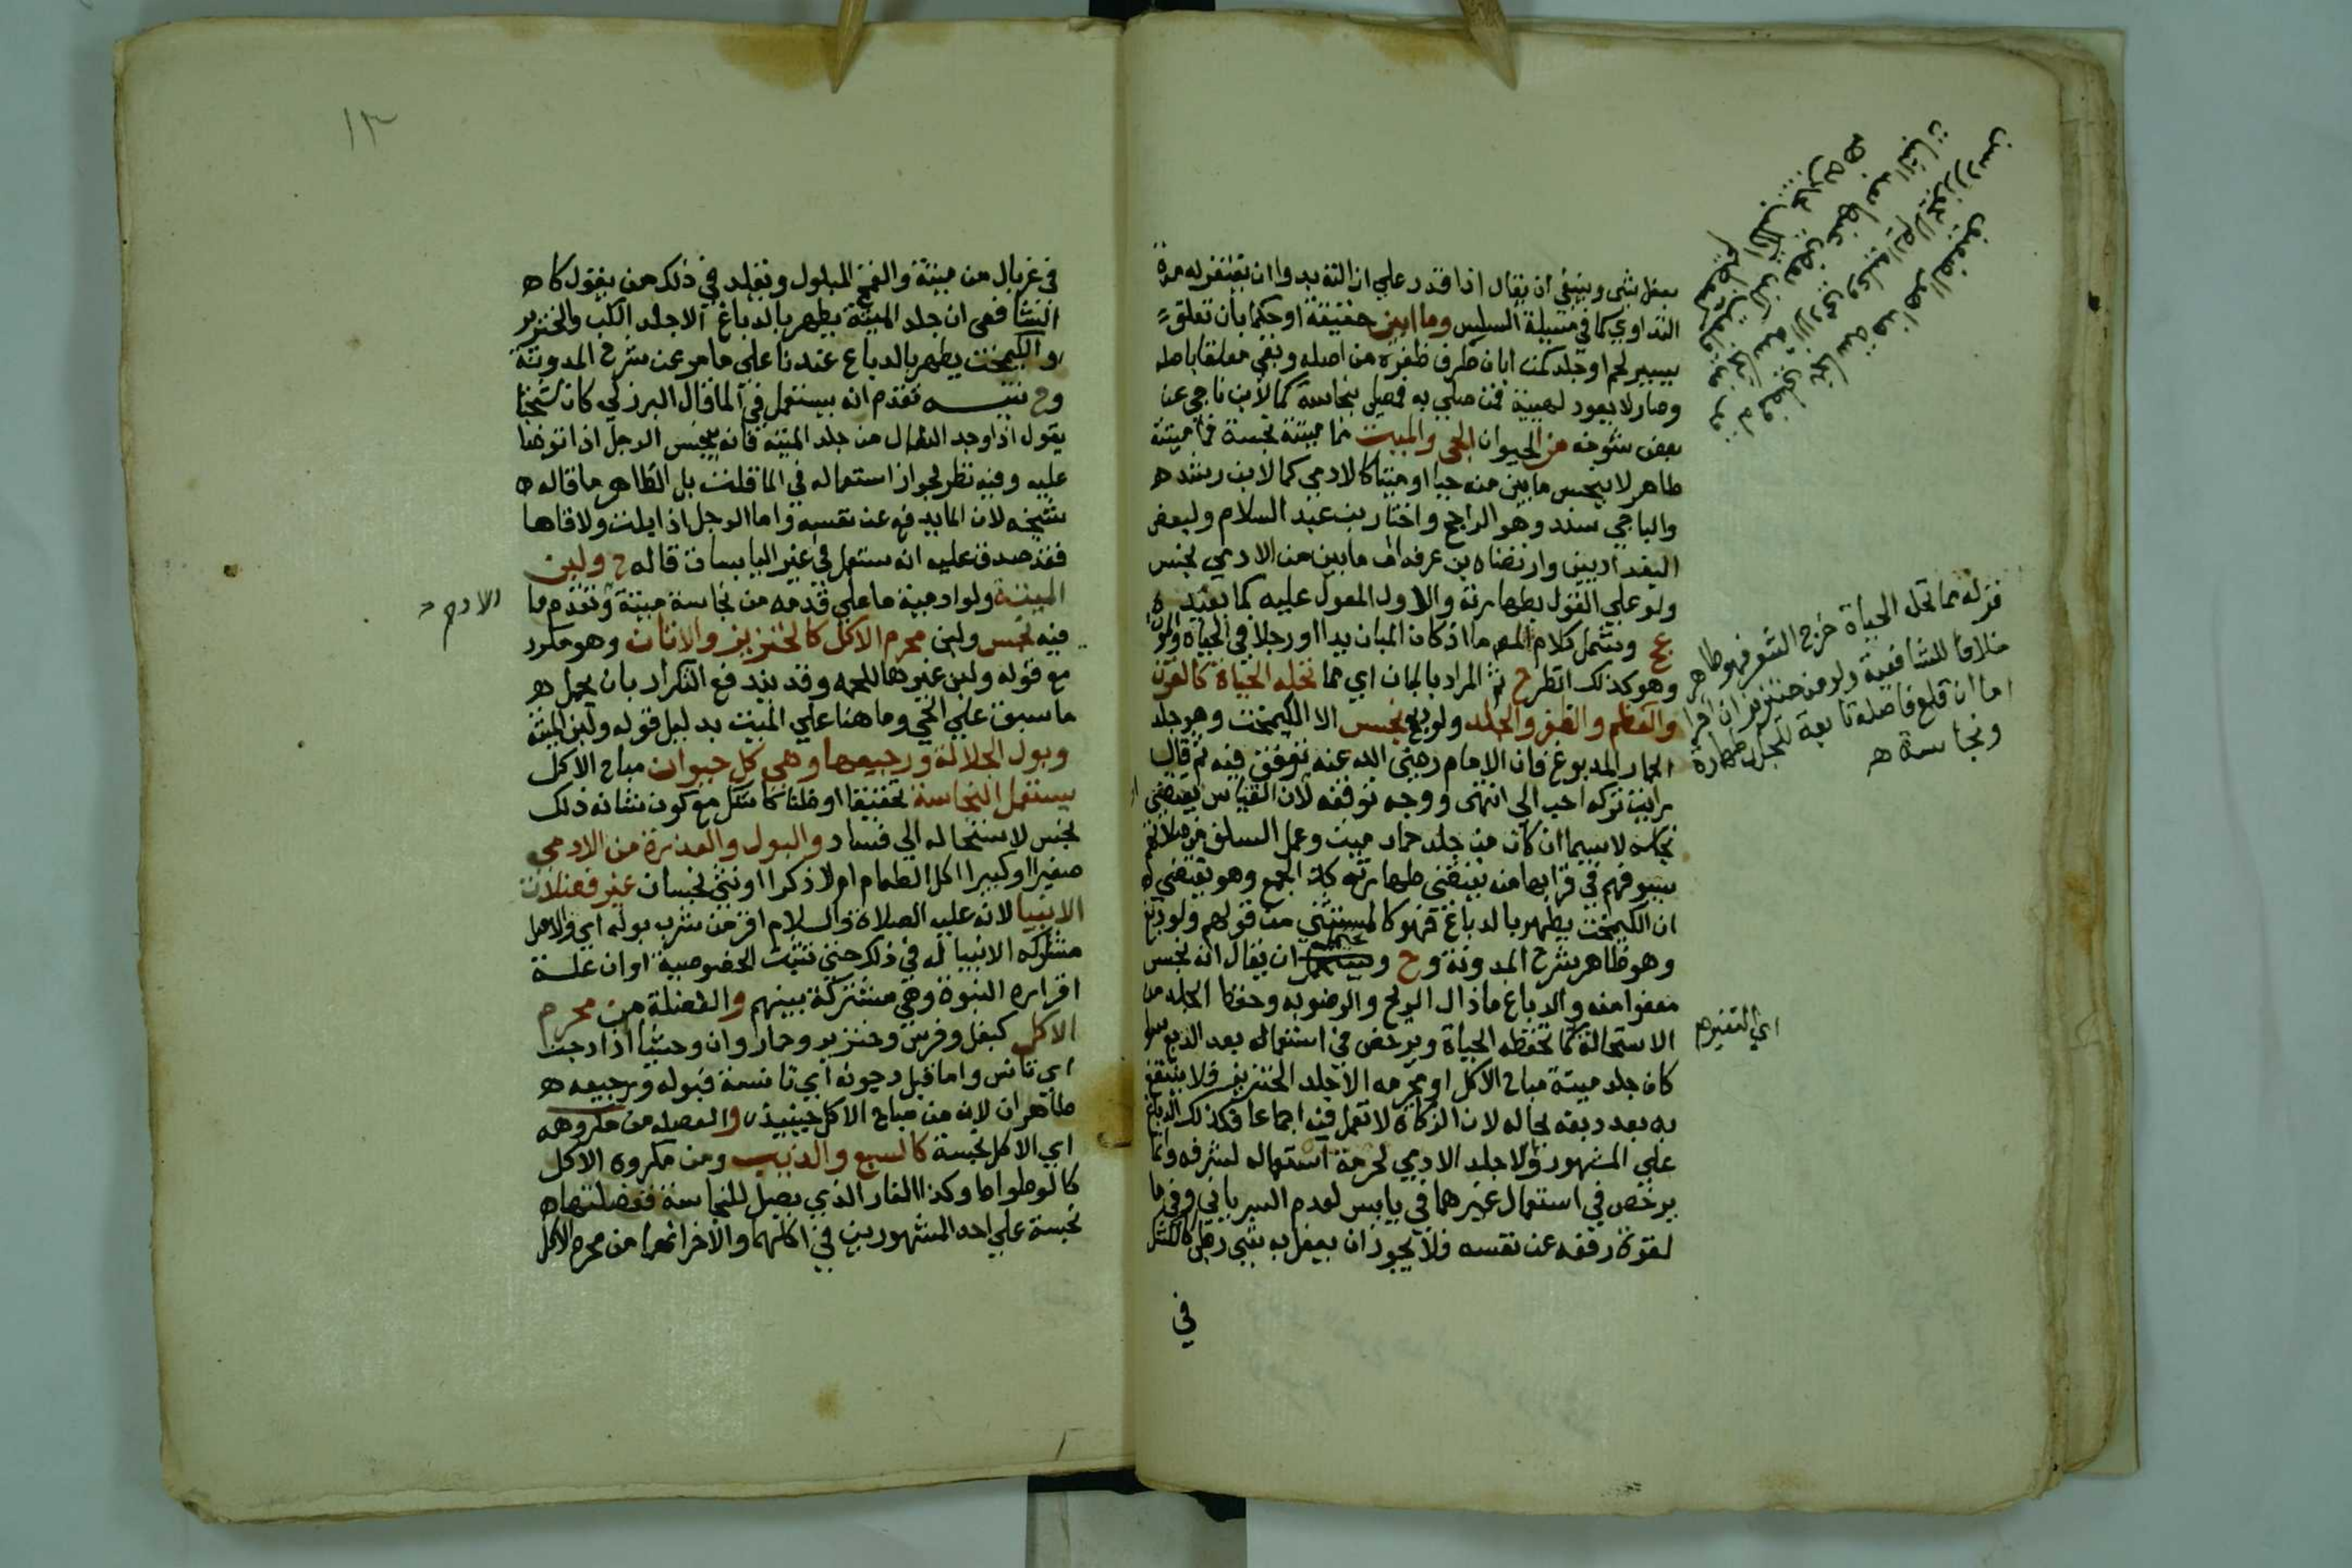 بعفل بشي وينبغي ان يقال اذا قدر علي ازالته بدواان يغتفر له مدة
التداوي كما في مسيلة السلس وما ابين حقيقة او حكما بان تعلق
بيسير لحم او جلد كمن ابان طرف ظفره من اصله وبقي معلقا باصله
وصار لا يعود لهيية فمن صلي به فمصلي بنجاسة كما لابن ناجي عن
بعض شيوخه من الحيوان الحي والميت فما ميتته نجسة فما ميتته
طاهر لا ينجس ما بين منه حيا او ميتا كالادمي كما لابن رشد ه
والباجي سند وهو الراجح واختار بن عبد السلام ولبعض
البغداديين وارتضاه بن عرفه ان ما بين من الادمي نجس
ولو علي القول بطهارته والاول المعول عليه كما يفيده
عج ويشمل كلام المص ما اذ كان المبان يدا او رجلا في الحياة والموت
وهو كذلك انظر ح ثم المراد بالمبان اي مما تحله الحياة كالقرن
والعظم والظفر والجلد ولو دبغ نجس الا الكيمخت وهو جلد
الحمار المدبوغ فان الامام رضي الله عنه توقف فيه ثم قال
رايت تركه احب الي انتهى ووجه توقفه لان القياس يقتضي
نجاسه لاسيما ان كان من جلد حمار ميت وعمل السلف من صلاتهم
بسيوفهم في قرابها منه يقتضي طهارته كذا لجمع وهو يقتضي
ان الكيمخت يطهر بالدباغ فهو كالمستثني من قولهم ولو دبغ
وهو ظاهر شرح المدونة وح ويحتمل ان يقال انه نجس
معفوا عنه والدباغ ما ازال الريح والرطوبه وحفظ الجلد من
الاستحالة كما تحفظه الحياة ويرخص في استعماله بعد الدبغ سوا
كان جلد ميتة مباح الاكل او محرمه الا جلد الخنزير فلا ينتفع
به بعد دبغه بحاله لان الزكاة لا تعمل فيه اجماعا فكذلك الدباغ
علي المشهور ولا جلد الادمي لحرمة استعماله لشرفه وانما
يرخص في استعمال غيرهما في يابس لعدم السريان وفي ما
لقوة دفعه عن نفسه فلا يجوز ان بعفل به شي رطب كالعسل
في
قوله مما تحله الحياة خرج الشعر فهو طاهر
خلافا للشافعية ولو من خنزير ان اخرا
اما ان قلع فاصله تابعة للمحل طهارة
ونجاسة ه
اي التغير م
١٣
في غربال من ميتة والقمح المبلول ونقلد في ذلك من يقول كا ه
الشافعي ان جلد الميتة يطهر بالدباغ الا جلد الكلب والخنزير
والكيمخت يطهر بالدباغ عندنا علي ما مر عن شرح المدونة
وح تنبيــه تقدم انه يستعمل في الما قال البرزلي كان شيخنا
يقول اذا وجد النعال من جلد الميتة فانه ينجس الرجل اذا توضا
عليه وفيه نظر لجواز استعماله في الما قلت بل الظاهر ما قاله ه
شيخه لان الما يدفع عن نفسه واما الرجل اذا بلت ولاقاها
فقد صدق عليه انه ستعمل في غير اليابسات قاله ح ولبن
الميتة ولو ادمية ما علي قدمه من نجاسة ميتة وتقدم ما
فيه نجس ولبن محرم الاكل كالخنزير والاتان وهو مكرر
مع قوله ولبن غيرها للحمه وقد يندفع التكرار بان يحمل ه
ما سبق علي الحي وما هنا علي الميت بدليل قوله ولبن الميتة
وبول الجلالة ورجيعها وهي كل حيوان مباح الاكل
يستعمل النجاسة تحقيقا او ظنا كاشك مع كون شانه ذلك
نجس لاستحاله الي فساد والبول والعذرة من الادمي
صغيرا او كبيرا اكل الطعام ام لا ذكرا او نثي نجسان غير فضلات
الانبيا لانه عليه الصلاة والسلام اقر من شرب بوله اي والاصل
مشاركه الانبيا له في ذلك حتي تثبت الخصوصية او ان علــة
اقراره النبوة وهي مشتركة بينهم والفضلة من محرم
الاكل كبغل وفرس وخنزير وحمار وان وحشيا اذا دجن
اي تانس واما قبل دجونه اي تانسه فبوله ورجيعه ه
طاهران لانه من مباح الاكل حينيذ والفضله من مكروهه
اي الاكل نجسة كالسبع والذيب ومن مكروه الاكل
كالوطواط وكذا الفار الذي يصل للنجاسة ففضلتهاه
نجسة علي احد المشهورين في اكالهما والاخر انهما من محرم الاكل
الادمي